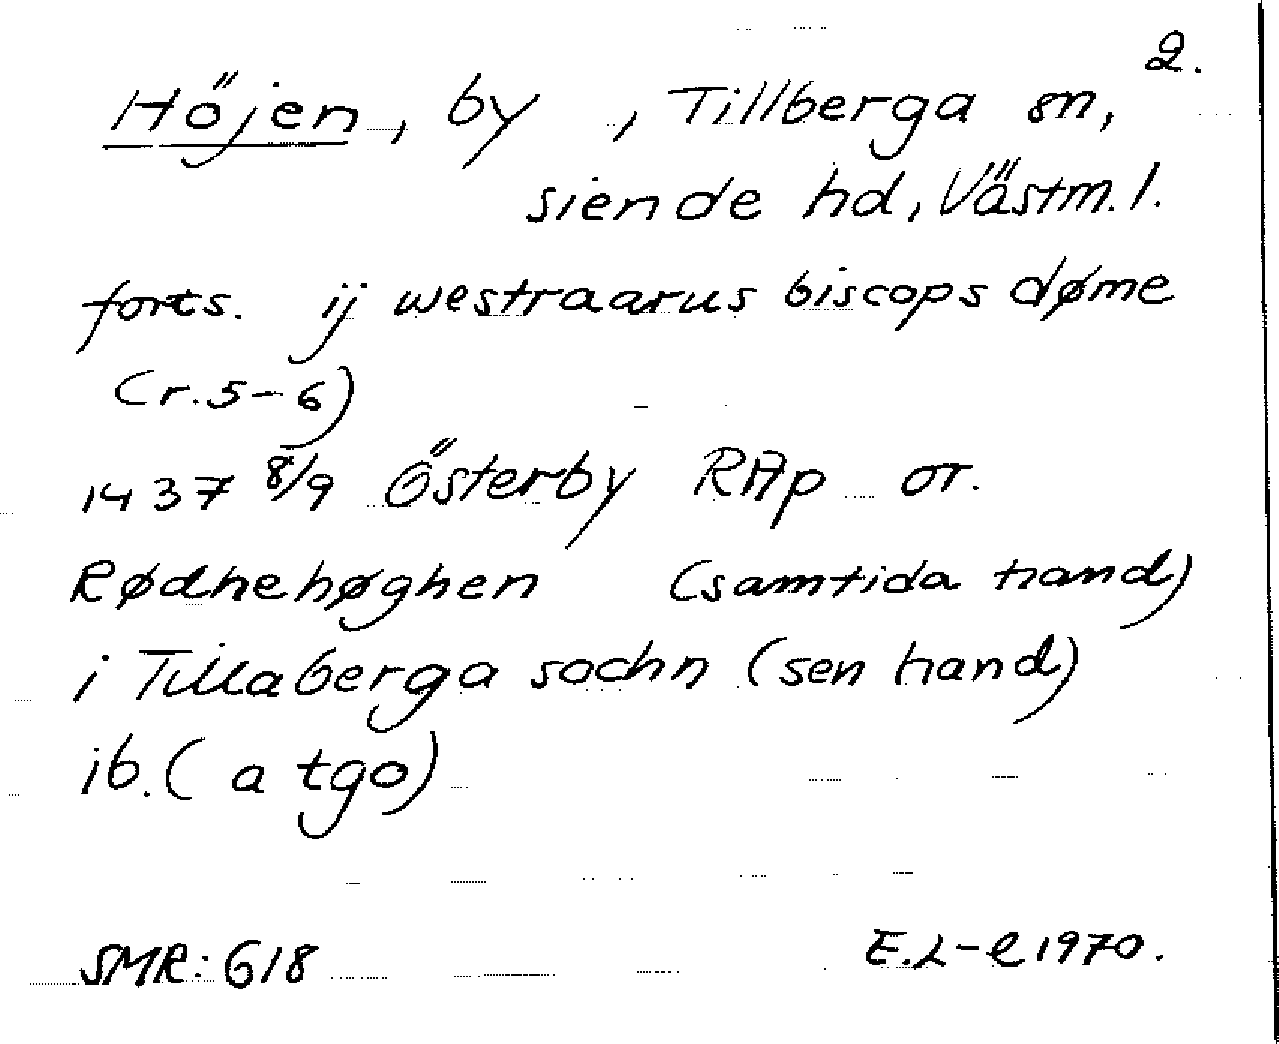 2.
Höjen, by , Tillberga sn,
siende hd, Västm. l.
forts. ij westraarus biscops døme
(r. 5-6)
1437 8/9 Österby RAp or.
Rødhehøghen (samtida hand)
i Tillaberga sochn (sen hand)
ib. (a tgo)
SMR: 618 E.L-e 1970.